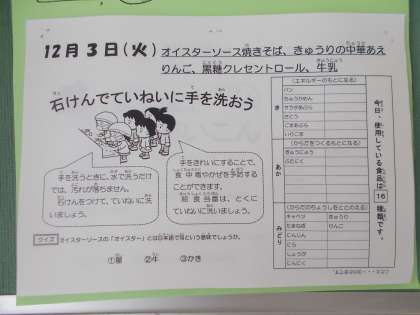 12月3日(火) オイスターソース焼きそば、きゅうりの中華あえ
りんご、黒糖クレセントロール、牛乳
石けんでていねいに手を洗おう
手を洗うときに、水で洗うだけ
では、汚れが落ちません。
石けんをつけて、ていねいに洗
いましょう。
手をきれいにすることで、
食中毒やかぜを予防する
ことができます。
給食当番は、とくに
ていねいに洗いましょう。
クイズ オイスターソースの「オイスター」とは日本語で何という意味でしょうか。
②牛 ③かき
今日、使用している食品は
16
種類です。
(エネルギーのもとになる)
き
パン
ちゅうかめん
サラダあぶら
さとう
ごまあぶら
いりごま
(からだをつくるもとになる)
あか
ぎゅうにゅう
ぶたにく
(からだのちょうしをととのえる)
みどり
キャベツ きゅうり
たまねぎ りんご
にんじん
にら
しょうが
にんにく